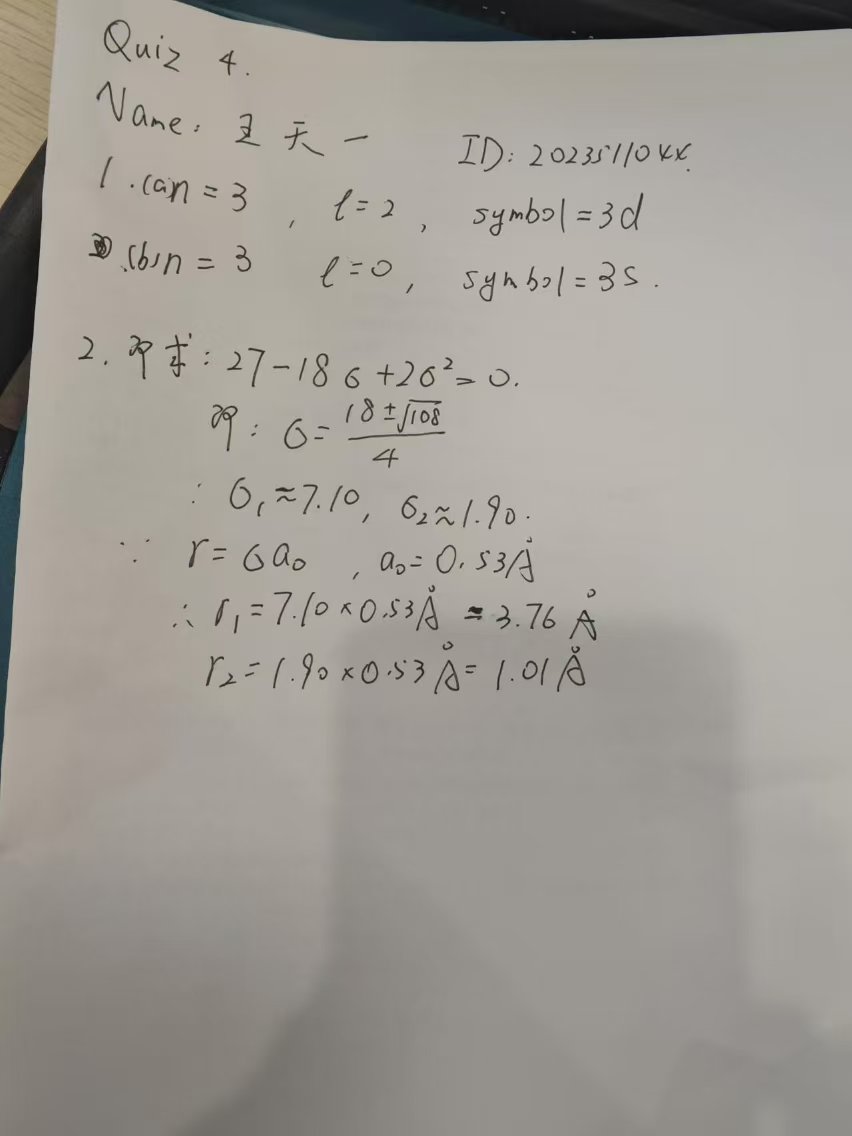 Quiz 4.
Name: 王天一 ID: 2023511044.
1. (a) n = 3, l = 2, symbol = 3d
(b) n = 3 l = 0, symbol = 3s.
2. 即求: 27 - 18σ + 2σ² = 0.
即: σ = (18 ± √108) / 4
∴ σ₁ ≈ 7.10, σ₂ ≈ 1.90.
∵ r = σa₀, a₀ = 0.53Å
∴ r₁ = 7.10 × 0.53Å = 3.76 Å
r₂ = 1.90 × 0.53 Å = 1.01 Å